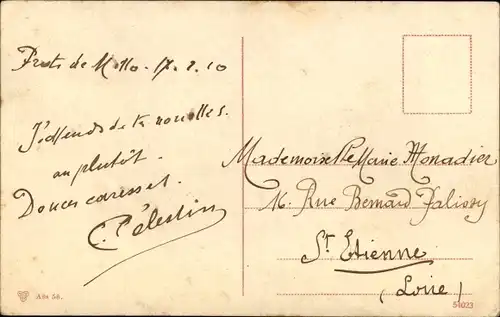 Prats de Mollo. 17. 2. 10
J'attends de tes nouvelles.
au plutôt.
Douces caresses.
C. Célestin
Mademoiselle Marie Monadier
14. Rue Bernard Palissy
St. Etienne
(Loire)
Año 56.
54023